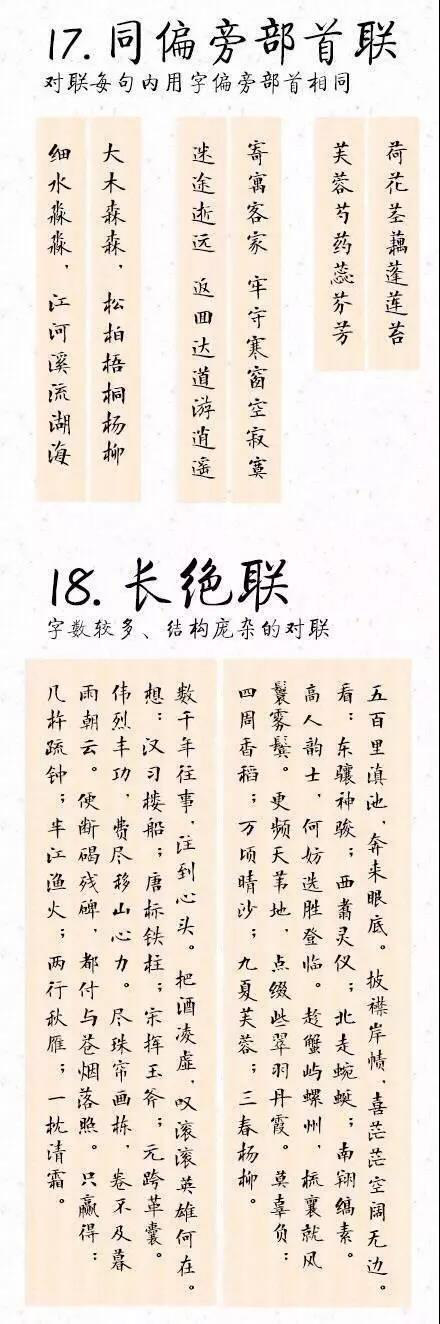 17. 同偏旁部首联
对联每句内用字偏旁部首相同
荷花茎藕蓬莲苔
芙蓉芍药蕊芬芳
寄寓客家 牢守寒窗空寂寞
迷途逝远 返回达道游逍遥
大木森森，松柏梧桐杨柳
细水淼淼，江河溪流湖海
18. 长绝联
字数较多、结构庞杂的对联
五百里滇池，奔来眼底。披襟岸帻，喜茫茫空阔无边。
看：东骧神骏；西翥灵仪；北走蜿蜒；南翔缟素。
高人韵士，何妨选胜登临。趁蟹屿螺州，梳襄就风
鬟雾鬓。更频天苇地，点缀些翠羽丹霞。莫辜负：
四周香稻；万顷晴沙；九夏芙蓉；三春杨柳。
数千年往事，注到心头。把酒凌虚，叹滚滚英雄何在。
想：汉习楼船；唐标铁柱；宋挥玉斧；元跨革囊。
伟烈丰功，费尽移山心力。尽珠帘画栋，卷不及暮
雨朝云。便断碣残碑，都付与苍烟落照。只赢得：
几杵疏钟；半江渔火；两行秋雁；一枕清霜。